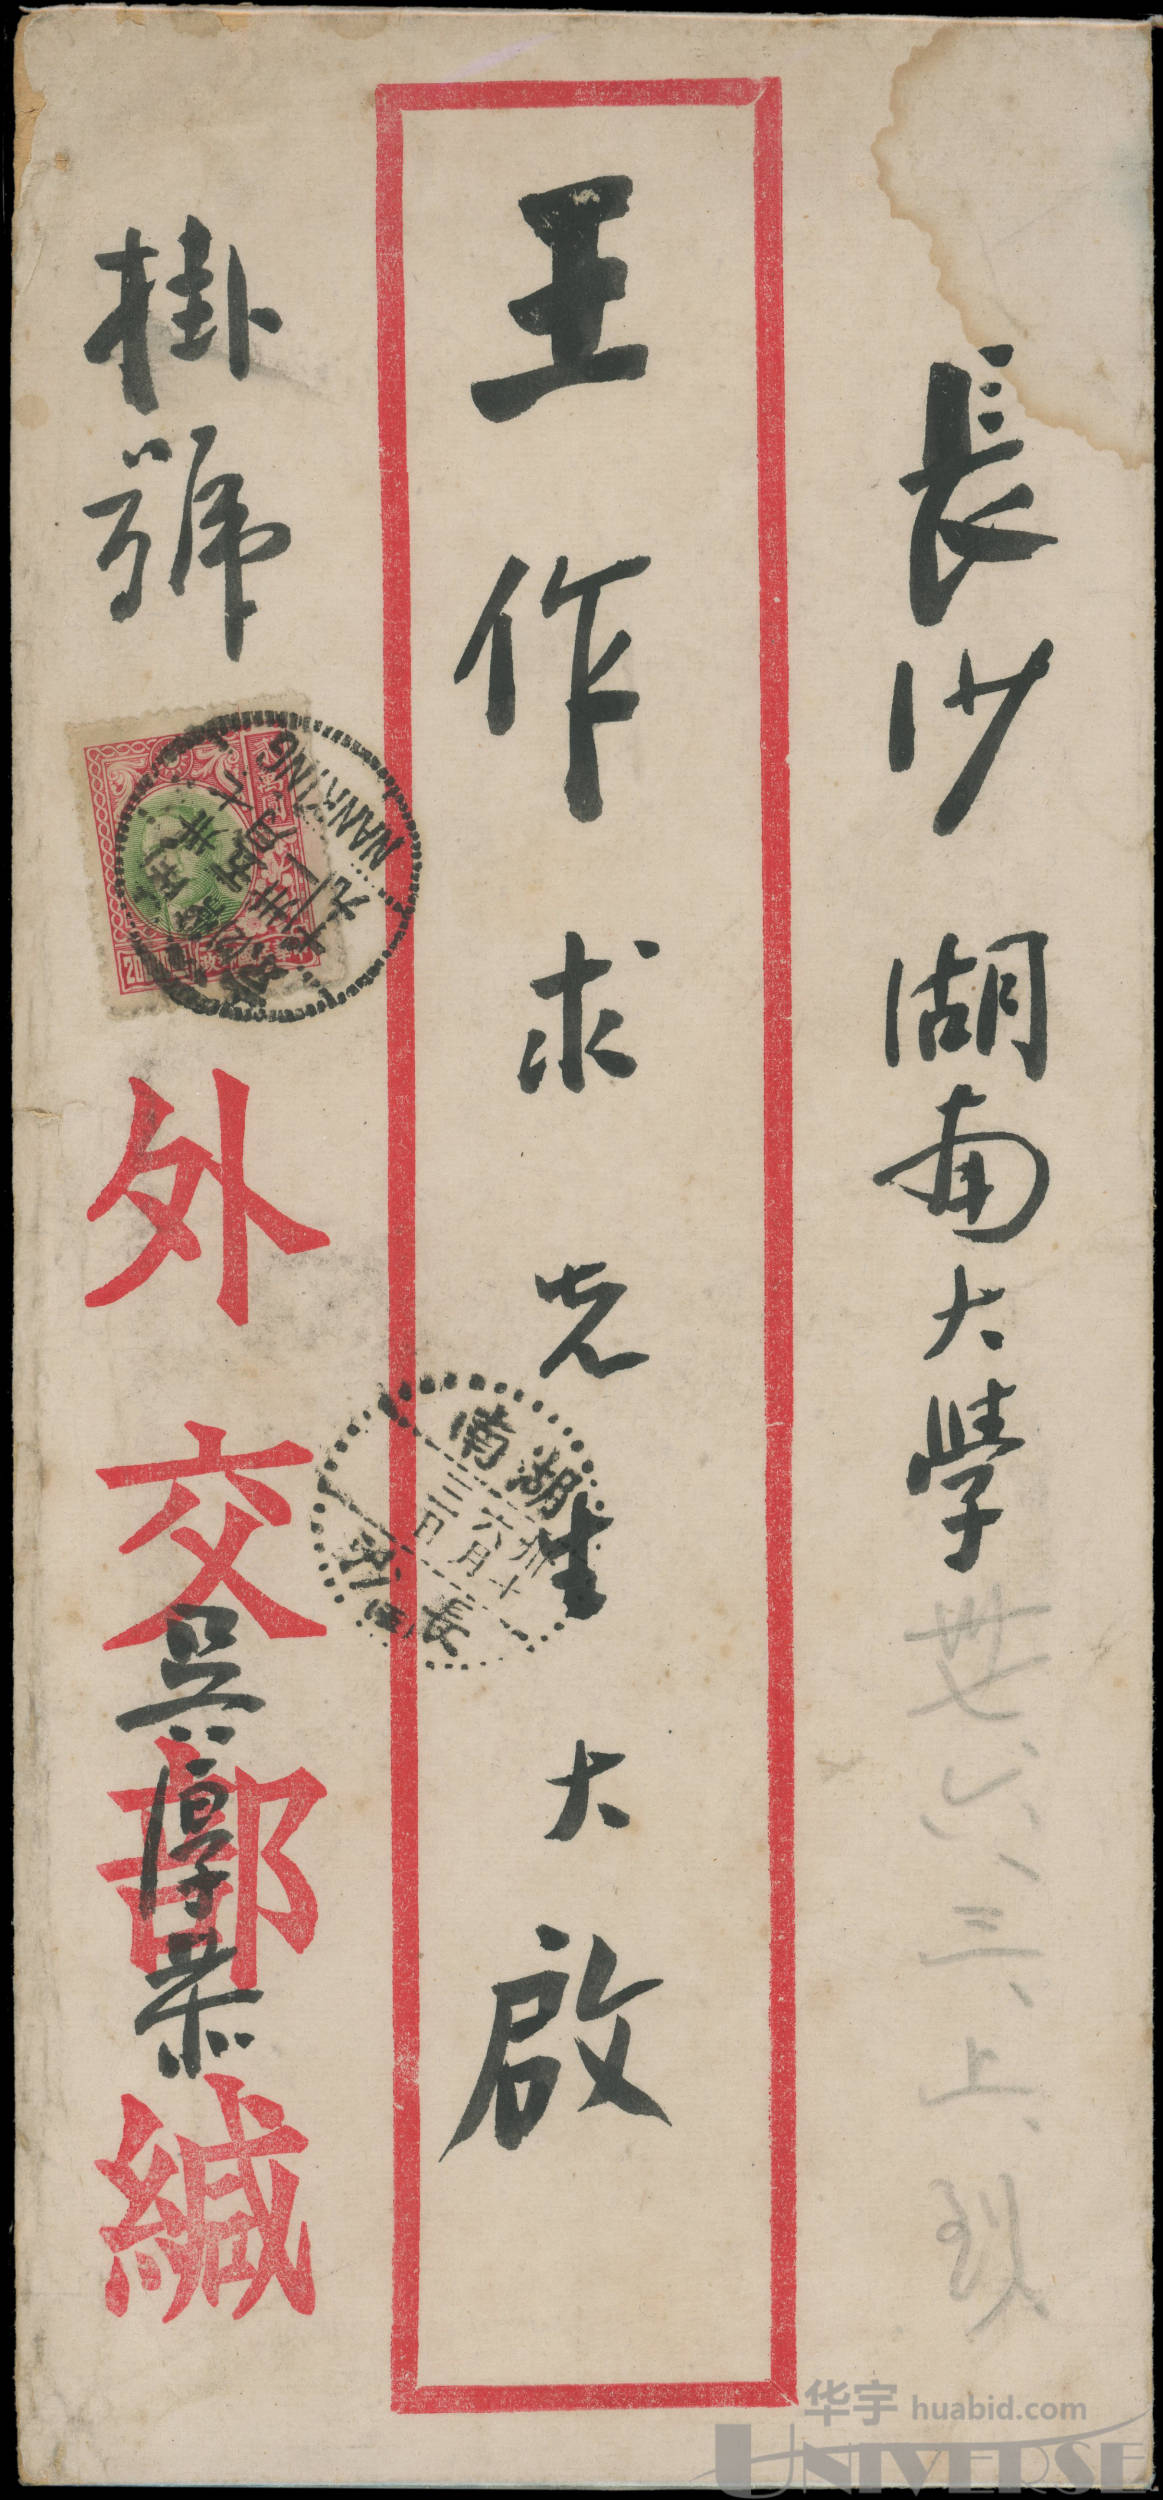 長沙湖南大學
卅七、六、三、上、到
王作求先生大啟
掛號
外交部緘
吳淳榮
NANKING
湖南
長沙
20
华宇 huabid.com
UNIVERSE